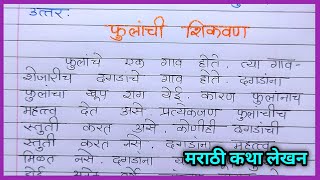 उत्तर:
फुलांची शिकवण
फुलांचे एक गाव होते. त्या गावा-
शेजारीच दगडाचे गाव होते. दगडांना
फुलांचा खूप राग येई. कारण फुलांनाच
महत्त्व देत असे. प्रत्येकजण फुलांचीच
स्तुती करत असे. कोणीही दगडाची
स्तुती करत नसे. दगडांना महत्त्व
मिळत नसे. दगडांना
मराठी कथा लेखन